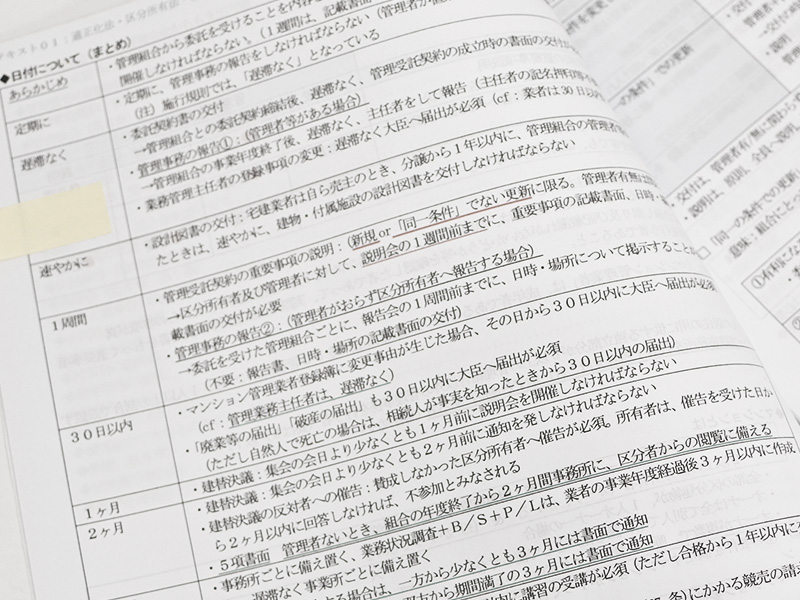 テキスト０１：適正化法・区分所有法
◆日付について（まとめ）
あらかじめ
・管理組合から委託を受けることを内容
開催しなければならない。（１週間は、記載書面
定期に
・定期に、管理事務の報告をしなければならない（管理者が
（注）施行規則では、「遅滞なく」となっている
遅滞なく
・委託契約書の交付
→管理組合との委託契約締結後、遅滞なく、管理受託契約の成立時の書面の交付が
・管理事務の報告①：（管理者等がある場合）
→管理組合の事業年度終了後、遅滞なく、主任者をして報告（主任者の記名押印
・業務管理主任者の登録事項の変更：遅滞なく大臣へ届出が必須（cf：業者は３０日以
速やかに
・設計図書の交付：宅建業者は自ら売主のとき、分譲から１年以内に、管理組合の管理者
たときは、速やかに、建物・付属施設の設計図書を交付しなければならない
１周間
・管理受託契約の重要事項の説明：（新規 or「同一条件」でない更新に限る。管理者有無に
→区分所有者及び管理者に対して、説明会の１週間前までに、重要事項の記載書面、日時・
載書面の交付が必要
・管理事務の報告②：（管理者がおらず区分所有者へ報告する場合）
→委託を受けた管理組合ごとに、報告会の１周間前までに、日時・場所について掲示すること
（不要：報告書、日時・場所の記載書面の交付）
３０日以内
・マンション管理業者登録簿に変更事由が生じた場合、その日から３０日以内に大臣へ届出が必
（cf：管理業務主任者は、遅滞なく）
・「廃業等の届出」「破産の届出」も３０日以内に大臣へ届出が必須
（ただし自然人で死亡の場合は、相続人が事実を知ったときから３０日以内の届出）
１ヶ月
・建替決議：集会の会日より少なくとも１ヶ月前に説明会を開催しなければならない
２ヶ月
・建替決議：集会の会日より少なくとも２ヶ月前に通知を発しなければならない
・建替決議の反対者への催告：賛成しなかった区分所有者へ催告が必須。所有者は、催告を受けた日か
ら２ヶ月以内に回答しなければ、不参加とみなされる
・５項書面　管理者ないとき、組合の年度終了から２ヶ月間事務所に、区分者からの閲覧に備える
・事務所ごとに備え置く、業務状況調査＋Ｂ／Ｓ＋Ｐ／Ｌは、業者の事業年度経過後３ヶ月以内に作成
遅滞なく事業所ごとに備え置く
場合は、一方から少なくとも３ヶ月には書面で通知
から期間満了の３ヶ月には書面で通知
内に講習の受講が必須（ただし合格から１年以内に
条）にかかる競売の請求
「同一の条件」での更新
・交付は、管理者有/無に限らず
・説明は、原則、全員へ説明
□「同一の条件での更新
意味：組合にと
①有利にな